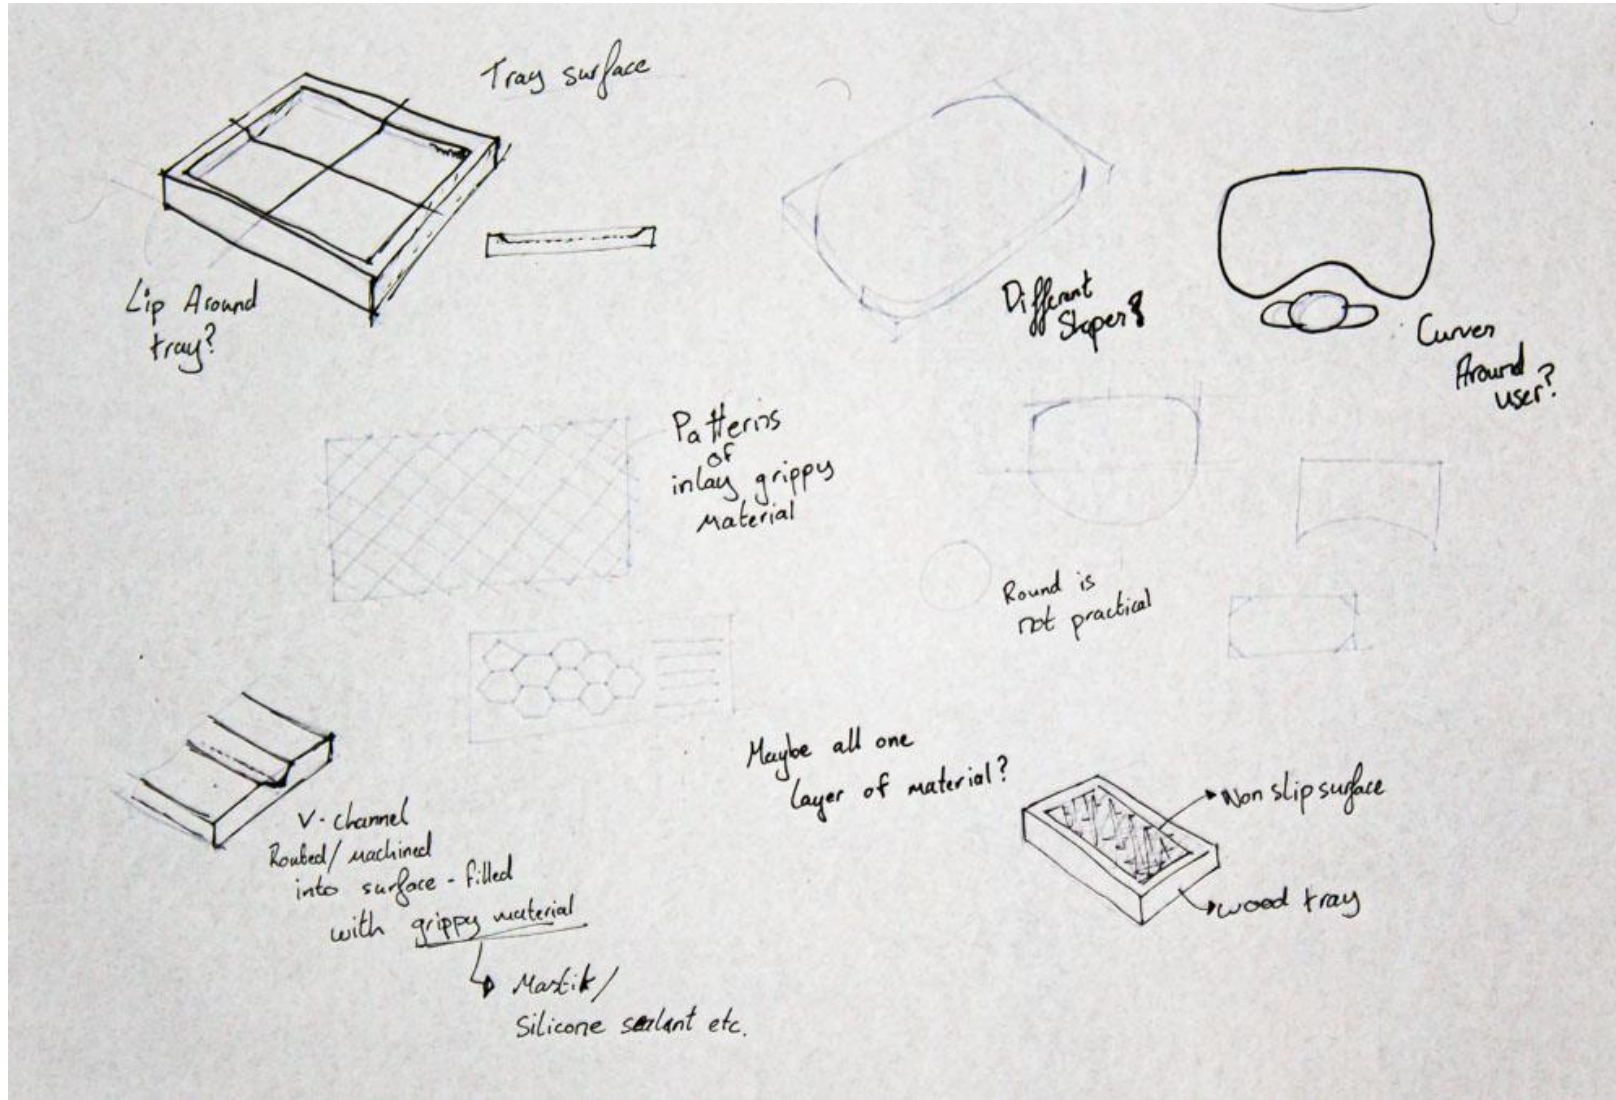 Tray surface
Lip Around
tray?
Different
Shapes?
Curves
Around
user?
Patterns
of
inlay grippy
Material
Round is
not practical
Maybe all one
layer of material?
Non slip surface
wood tray
V-channel
Routed/machined
into surface - filled
with grippy material
Mastik/
Silicone sealant etc.